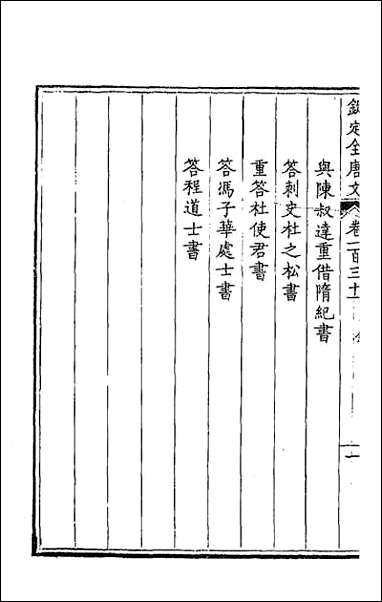 欽定全唐文 卷一百三十一
與陳叔達重借隋紀書
答刺史杜之松書
重答杜使君書
答馮子華處士書
答程道士書